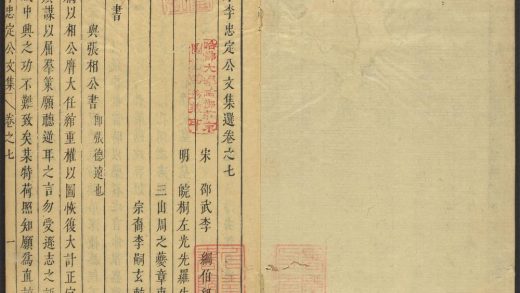 李忠定公文集選卷之七
宋 邵武李 綱伯紀
明 皖桐左光先羅生
三山周之夔章甫
宗裔李嗣玄
書
與張相公書 即張德遠也
以相公膺大任綰重權以圖恢復大計正
謀以屈羣策願聽逆耳之言勿受遜志之
中興之功不難致矣某特荷照知願爲直
李忠定公文集 卷之七 一